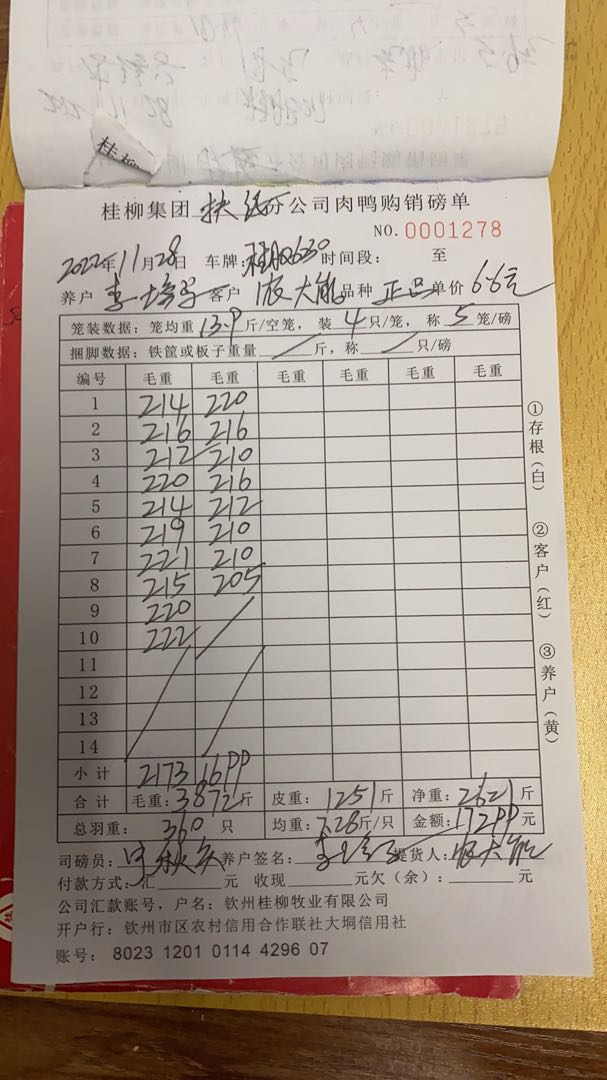 桂柳
桂柳集团 扶绥 分公司肉鸭购销磅单
NO. 0001278
2022年11月28日 车牌: 时间段: 至
养户 李 客户 品种 正品 单价 6.6元
笼装数据：笼均重 13.9 斤/空笼，装 4 只/笼，称 5 笼/磅
捆脚数据：铁筐或板子重量 / 斤，称 / 只/磅
编号 毛重 毛重 毛重 毛重 毛重 毛重
1 214 220
2 216 216
3 212 210
4 220 216
5 214 212
6 219 210
7 221 210
8 215 205
9 220
10 222
11
12
13
14
小计 2173 1699
合计 毛重: 3872斤 皮重: 1251斤 净重: 2621斤
总羽重: 360 只 均重: 7.28斤/只 金额: 17299元
司磅员: 养户签名: 提货人:
付款方式: 汇 元 收现 元欠（余）: 元
公司汇款账号，户名：钦州桂柳牧业有限公司
开户行：钦州市区农村信用合作联社大垌信用社
账号：8023 1201 0114 4296 07
①存根(白)
②客户(红)
③养户(黄)